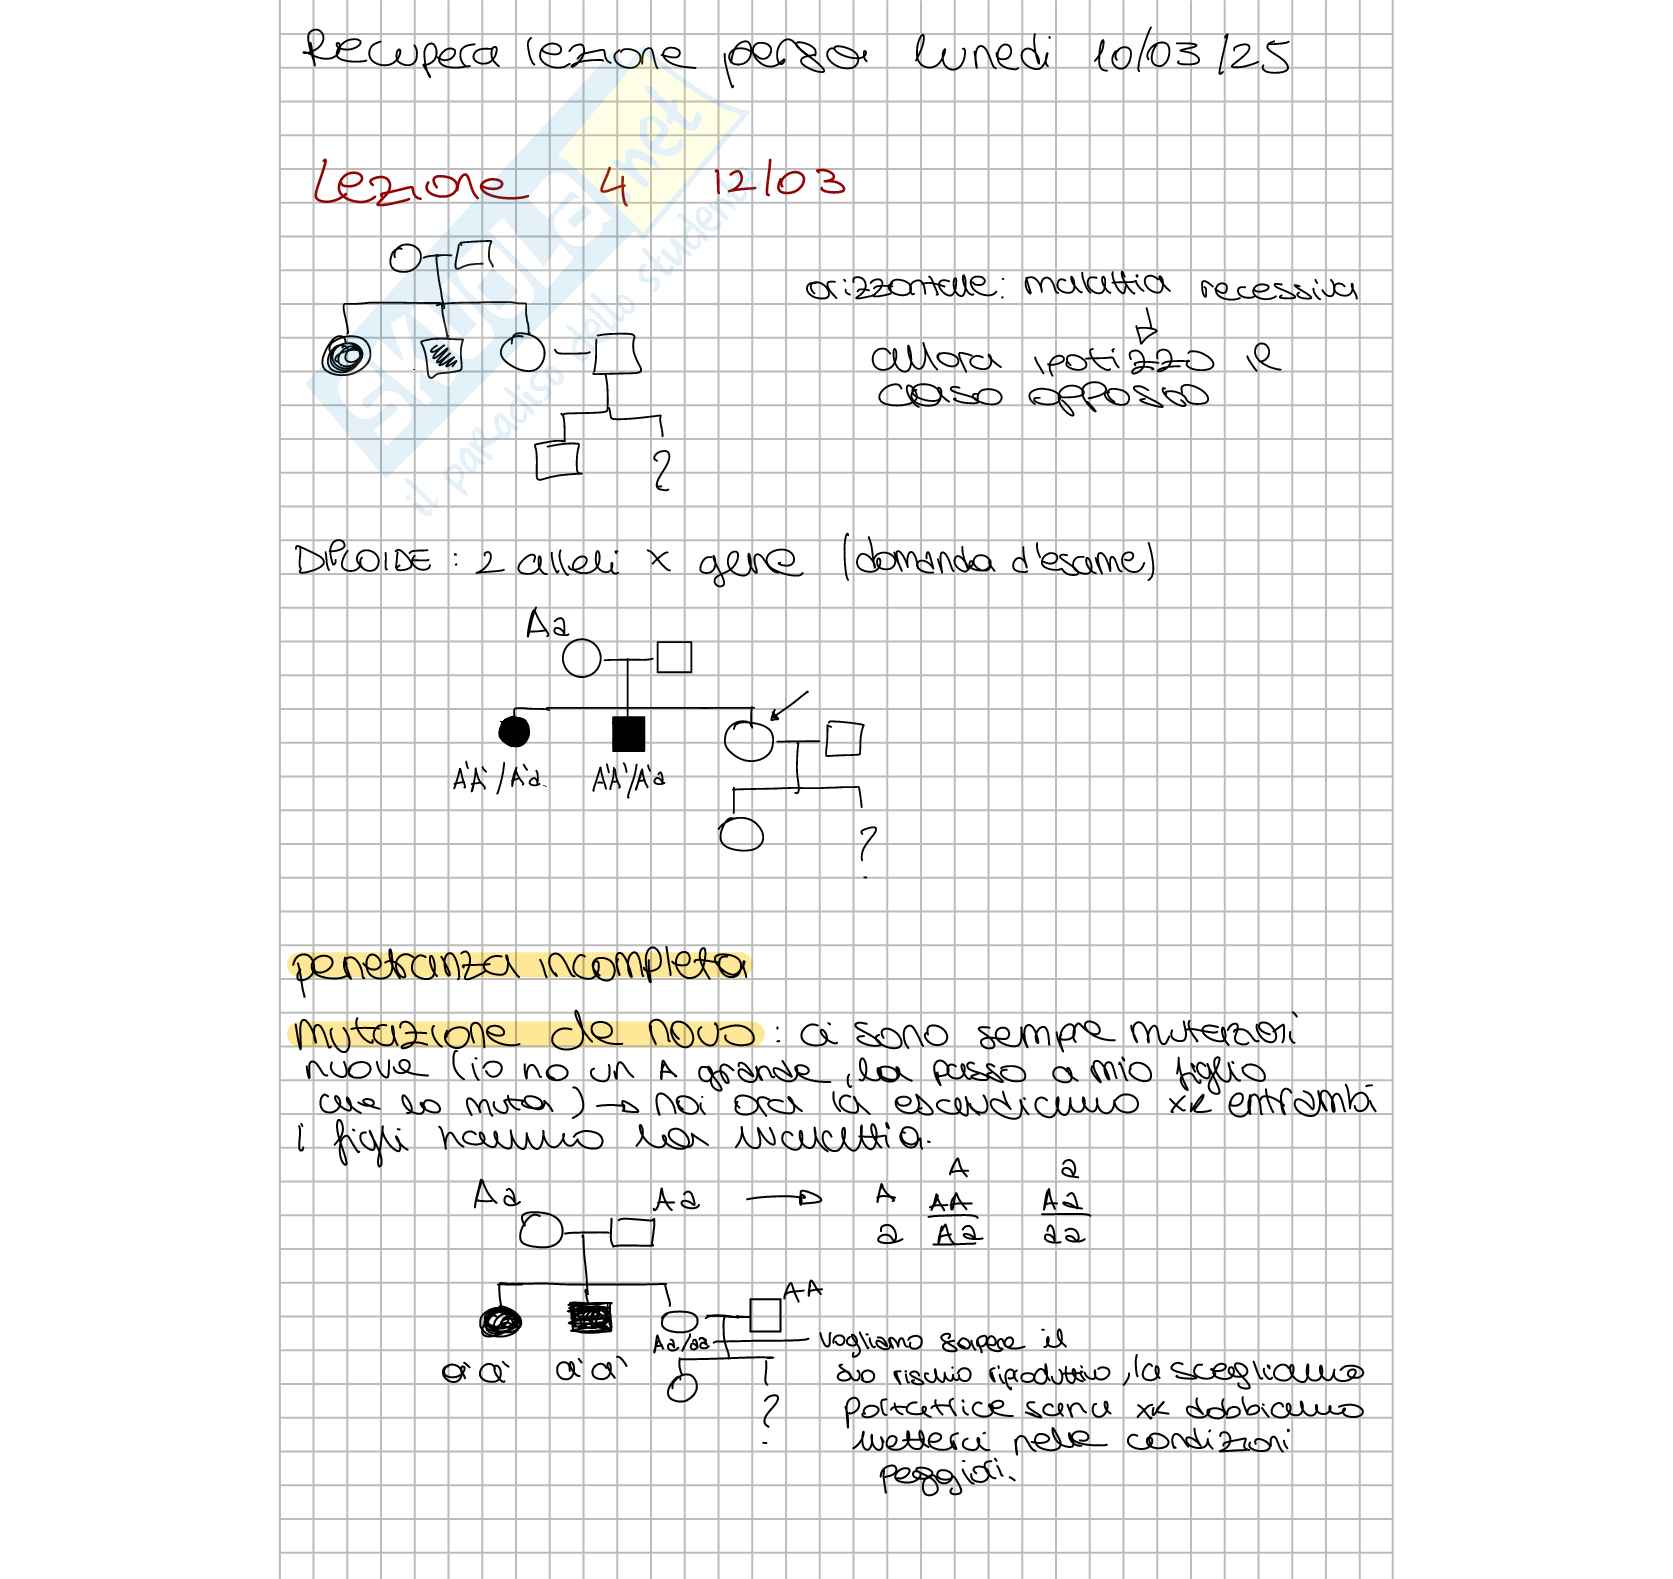 Recupera lezione persa lunedi 10/03/25
Lezione 4 12/03
SKUOLA.net
il paradiso dello studente
orizzontale: malattia recessiva
allora ipotizzo il
caso opposto
?
DIPLOIDE : 2 alleli x gene (domanda d'esame)
Aa
A'A' / A'a A'A'/A'a
?
penetranza incompleta
mutazione de novo : ci sono sempre mutazioni
nuove (io ho un A grande, la passo a mio figlio
che la muta) → noi ora la escludiamo xk entrambi
i figli hanno la malattia.
A a
Aa Aa → A AA Aa
a Aa aa
AA
Aa/aa vogliamo sapere il
a'a' a'a' suo rischio riproduttivo, la scegliamo
? portatrice sana xk dobbiamo
metterci nelle condizioni
peggiori.